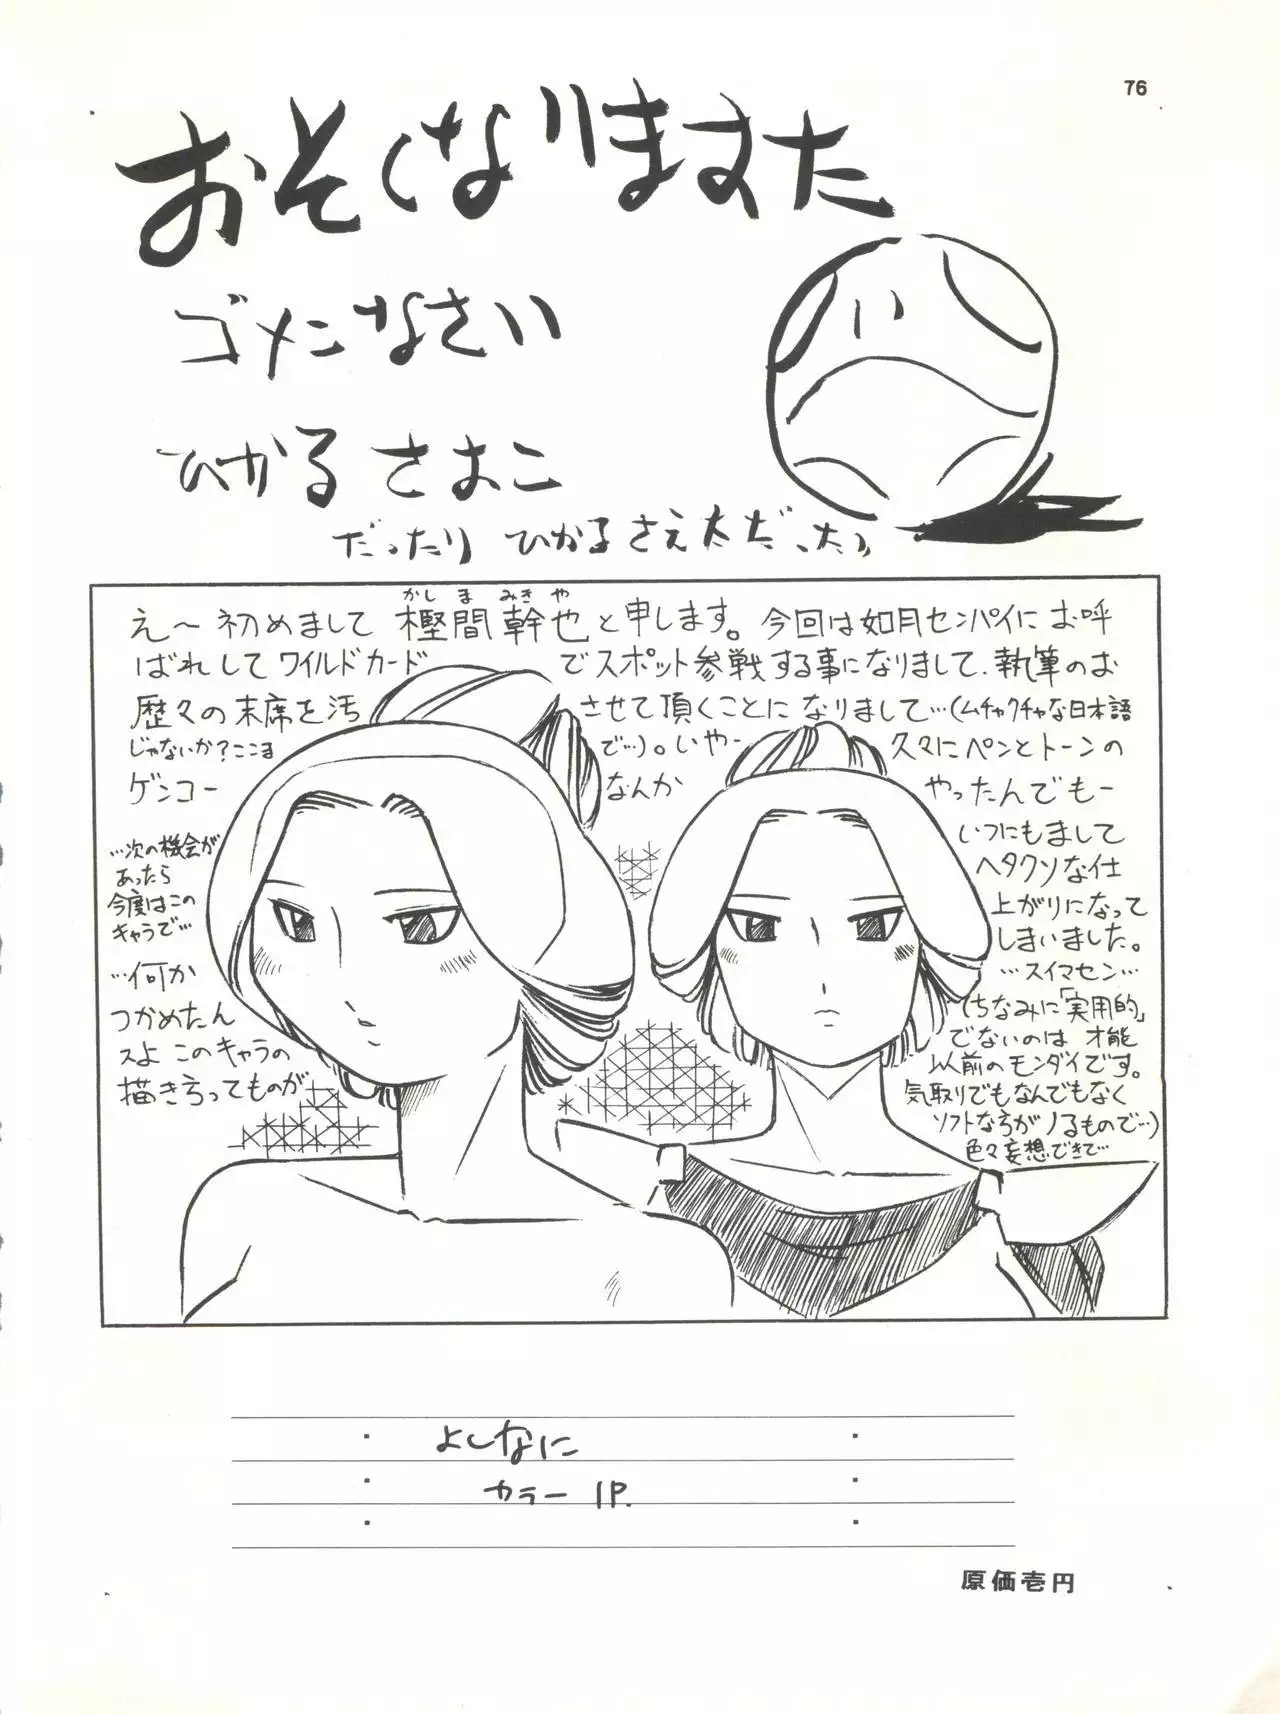 76
おそくなりますた
ゴメンなさい
ひかる さおこ
だったり ひかるさえ太だったり
かしまみきや
え〜初めまして樫間幹也と申します。今回は如月センパイにお呼
ばれしてワイルドカードでスポット参戦する事になりまして、執筆のお
歴々の末席を汚させて頂くことになりまして…(ムチャクチャな日本語
じゃないか?ここまで…)。いやー久々にペンとトーンの
ゲンコーなんかやったんでもー
いつにもまして
ヘタクソな仕
上がりになって
しまいました。
…スイマセン…
(ちなみに「実用的」
でないのは才能
以前のモンダイです。
気取りでもなんでもなく
ソフトな方がノるもので…)
色々妄想できて…
…次の機会が
あったら
今度はこの
キャラで…
…何か
つかめたん
スよ このキャラの
描き方ってものが
よしなに
カラー 1P.
原価壱円